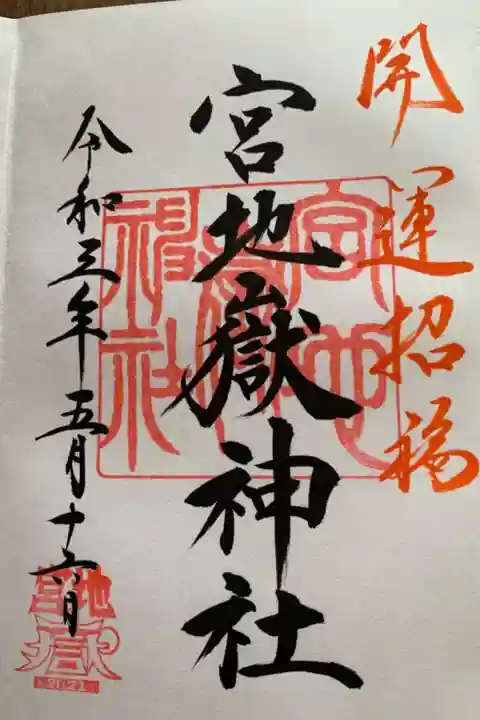 開運招福
宮地嶽神社
令和三年五月十六日
宮地嶽神社
宮地嶽
2021